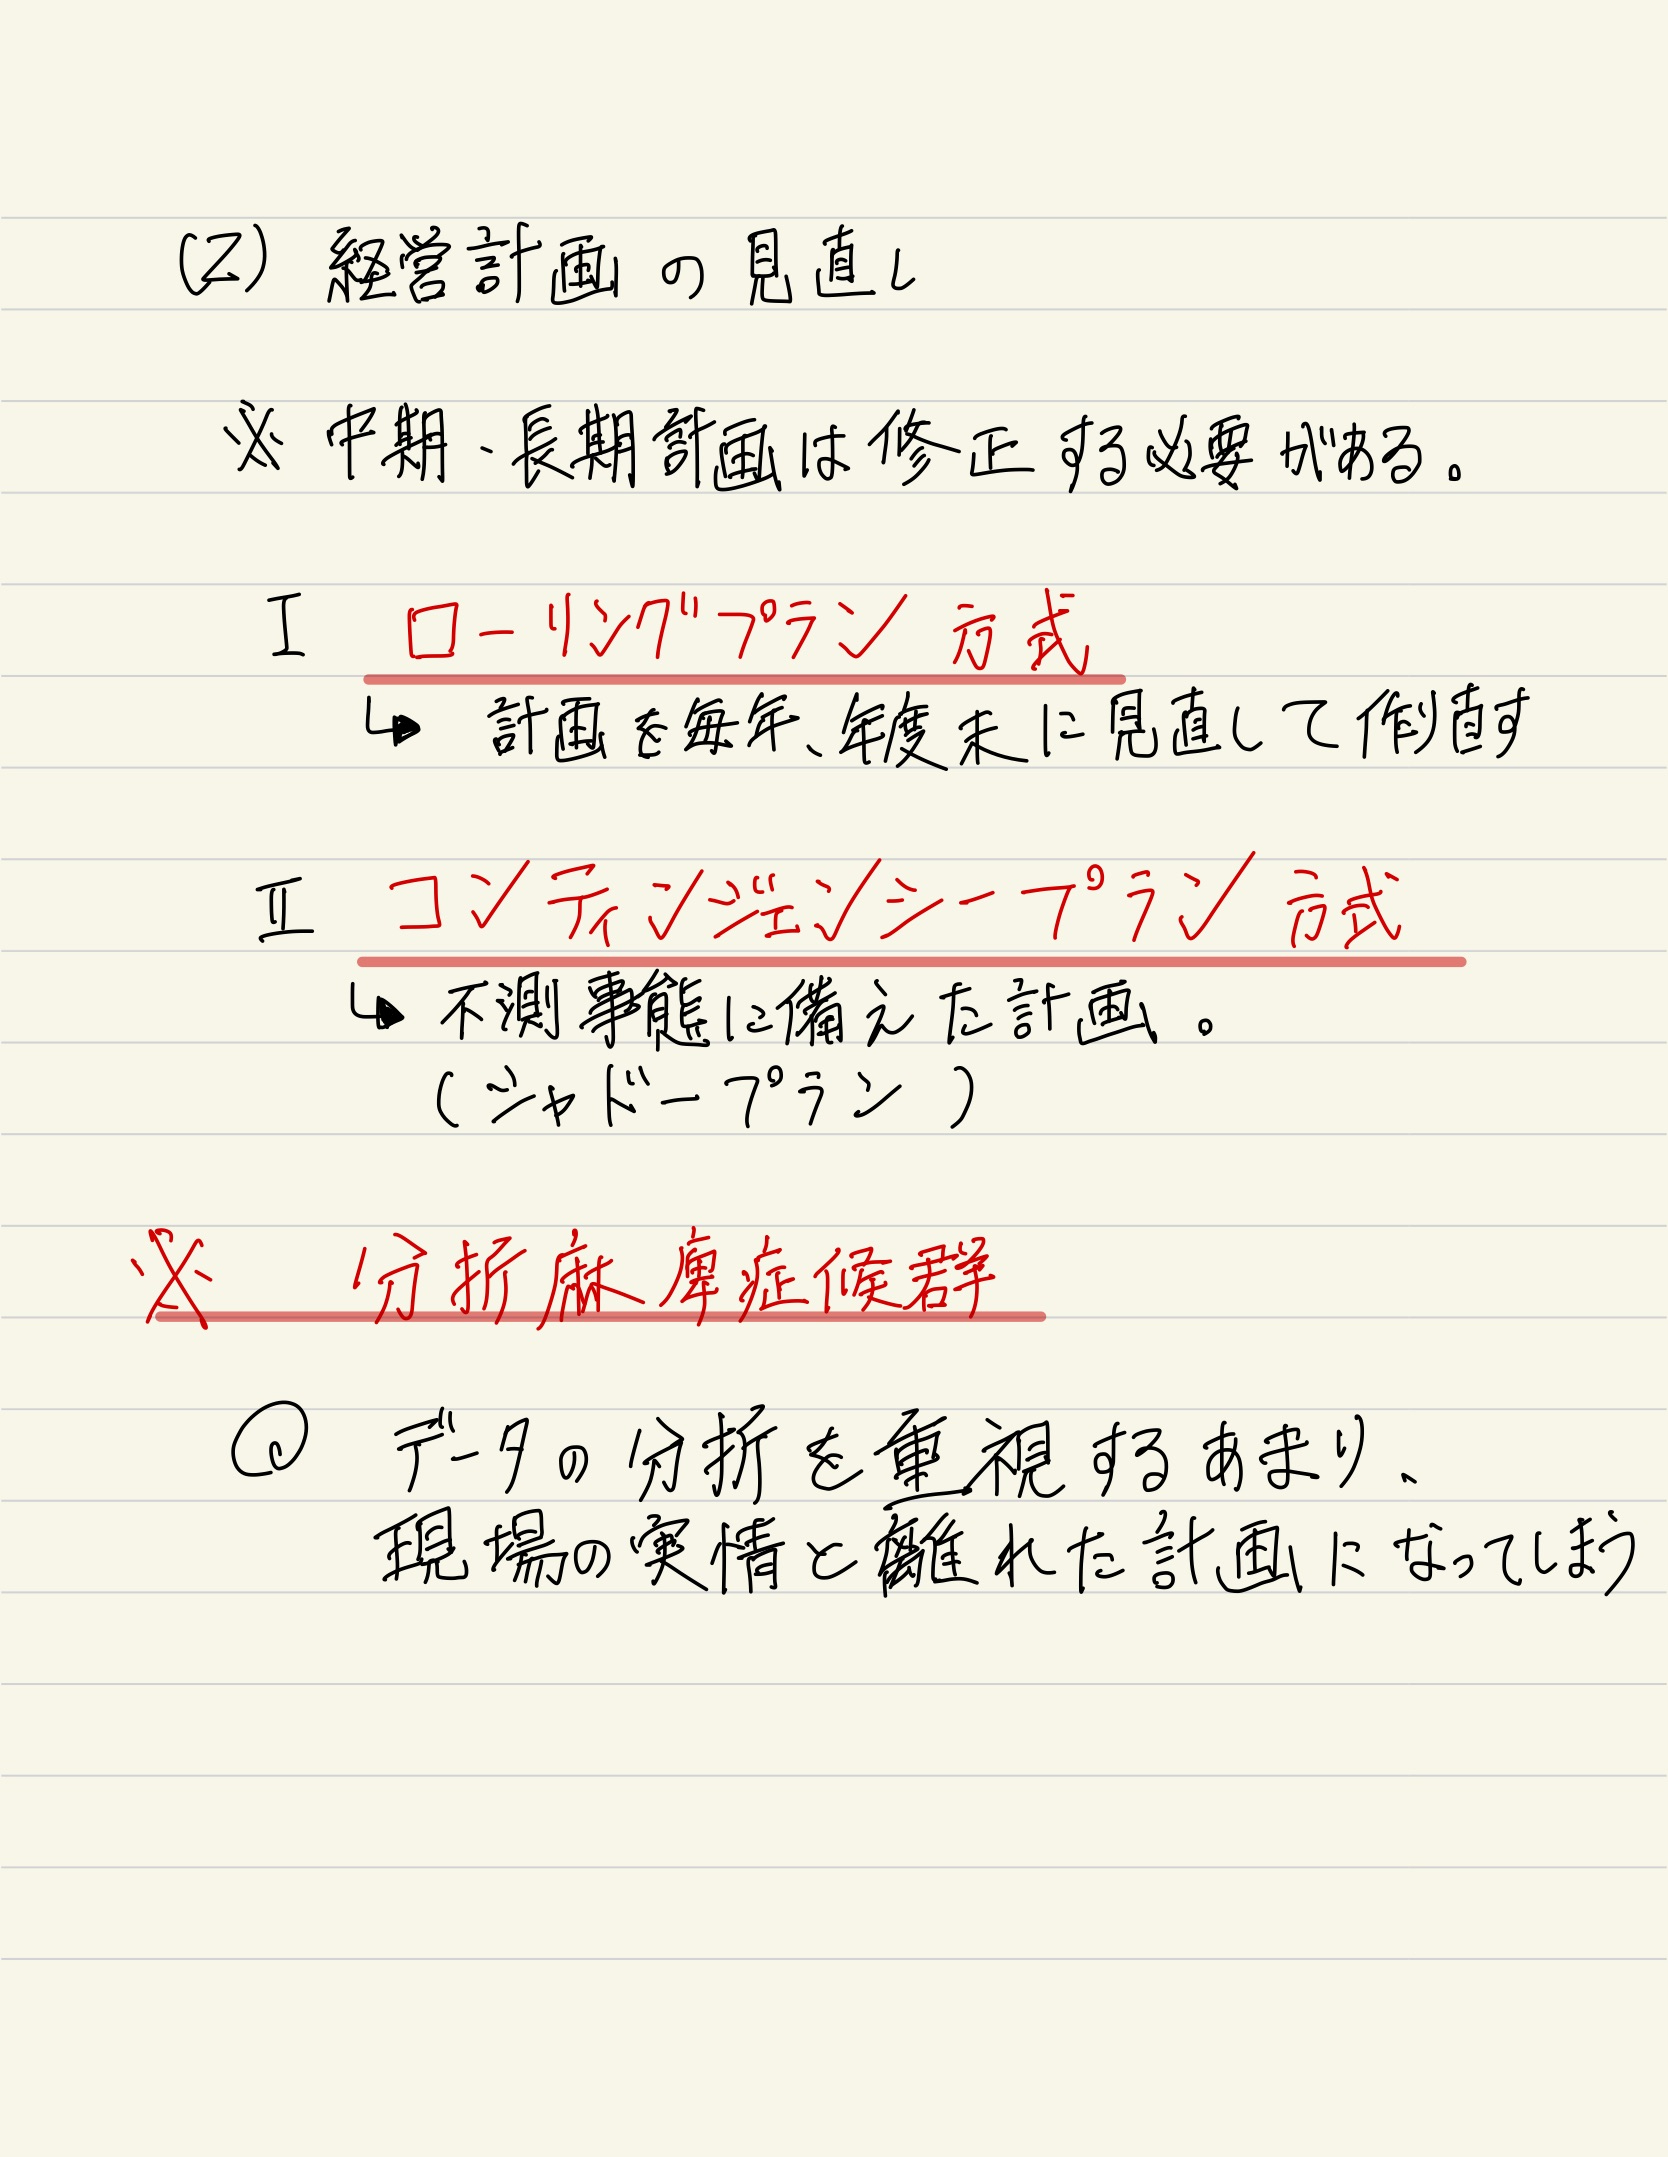 (2) 経営計画の見直し
※ 中期・長期計画は修正する必要がある。
Ⅰ ローリングプラン方式
↳ 計画を毎年、年度末に見直して作り直す
Ⅱ コンティンジェンシープラン方式
↳ 不測事態に備えた計画。
(シャドープラン)
※ 分折麻痺症候群
◎ データの分折を重視するあまり、
現場の実情と離れた計画になってしまう